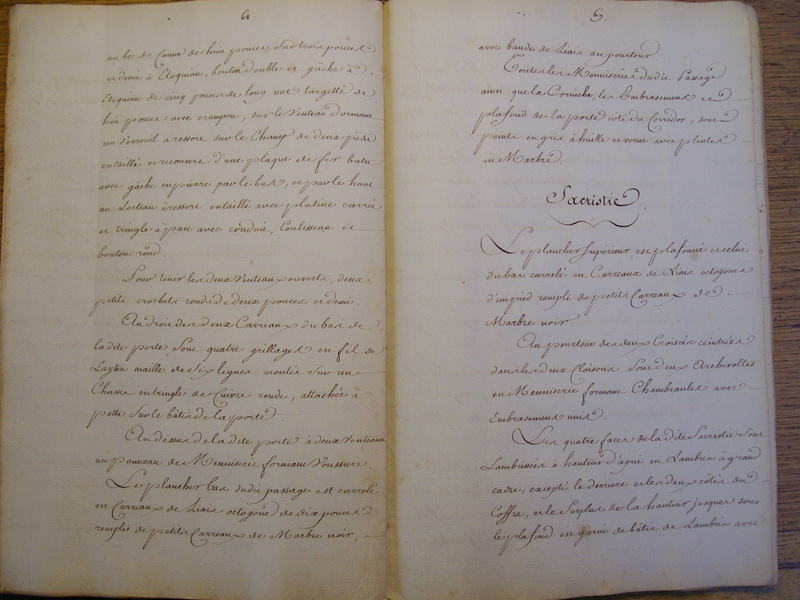 68.
un bec de Canne de huit pouces sur trois pouces
et demi à Etoquiau, bouton double et gâche à
Etoquiau de cinq pouces de long une targette de
huit pouces avec crampon, sur le Venteau dormant
un Verrouil a ressort sur le Champ de deux pieds
entaillé et recouvert d'une plaque de fer battu
avec gâche en pierre par le bas, et par le haut
un Locteau à ressort entaillé avec platine carrée
et tringle à pate avec conduit, Coulisseau et
bouton rond.
Pour tenir les deux Venteaux ouverts, deux
petits crochets ronds de deux pouces et demi.
Au droit des deux Carreaux du bas de
la dite porte, sont quatre grillages en fil de
Layton maille de six lignes montés sur un
Chassis en tringle de Cuivre ronde, attachée à
patte sur le bâtis de la porte.
Au dessus de la dite porte à deux Venteaux
un panneau de Menuiserie formant Voussure.
Le plancher bas dudit passage est carrelé
en Carreaux de Liais octogone de dix pouces
remplis de petits Carreaux de Marbre noir,
69.
avec bandes de Liais au pourtour
Toutes les Menuiseries dudit Passage
ainsi que la Corniche, les Embrasements et
plafond de la porte côté du Corridor, sont
peints en gris à huille et vernis avec plintes
en Marbre.
Sacristie.
Le plancher supérieur est plafonné et celui
du bas carrelé en Carreaux de Liais octogones
d'un pied rempli de petits Carreaux de
Marbre noir
Au pourtour des deux Croisées ceintrées
dans les deux Cloisons sont deux Archivoltes
en Menuiserie formant Chambranles avec
Embrasement unis.
Les quatre faces de la dite Sacristie sont
Lambrissées à hauteur d'apui en Lambris à grand
cadre, excepté le derrière et les deux côtés du
Coffre, et le Surplus de la hauteur jusques sous
le plafond est garni de bâtis de Lambris avec